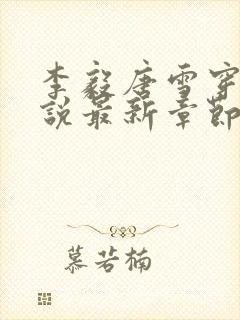 李毅唐雪穿
説最新章節
慕若楠